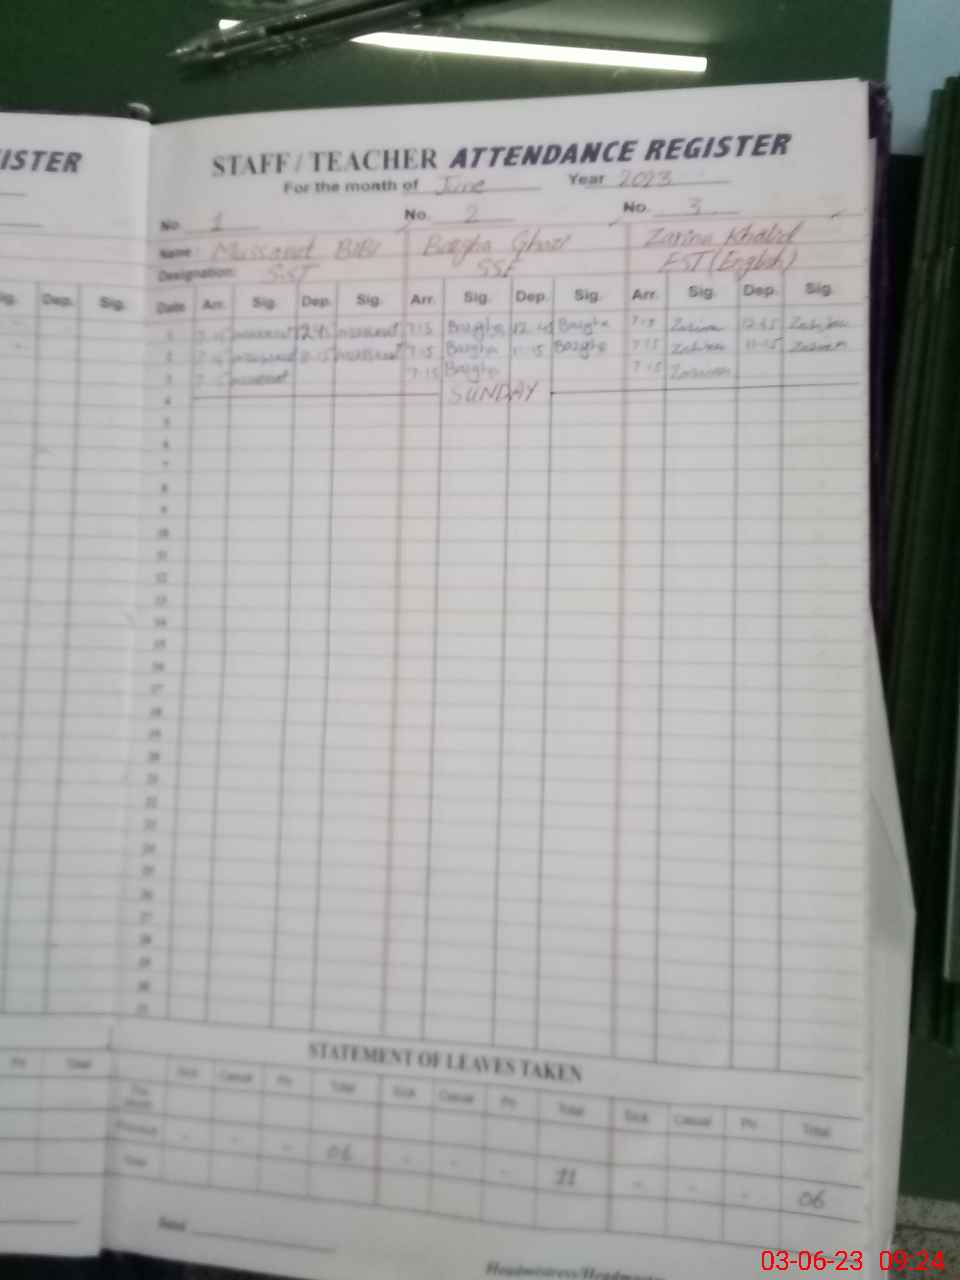 ISTER
STAFF / TEACHER ATTENDANCE REGISTER
For the month of June Year 2023
No. 1 No. 2 No. 3
Name Mussarat BiBi Bazgha Zarina Khalid
Designation: SST EST (English)
Sig. Dep. Sig. Date Arr. Sig. Dep. Sig. Arr. Sig. Dep. Sig. Arr. Sig. Dep. Sig.
1 7:15 12:45 7:15 Bazgha 12:45 Bazgha 7:15 Zarina 12:45
2 7:15 11:15 7:15 Bazgha 11:15 Bazgha 7:15 11:15
3 7:15 Bazgha 7:15
4 SUNDAY
5
6
7
8
9
10
11
12
13
14
15
16
17
18
19
20
21
22
23
24
25
26
27
28
29
30
31
STATEMENT OF LEAVES TAKEN
Total Sick Casual Total Sick Casual Total Sick Casual Total
Previous - - - 06 - - - 11 - - - 06
Total
Headmistress/Headmaster
03-06-23 09:24